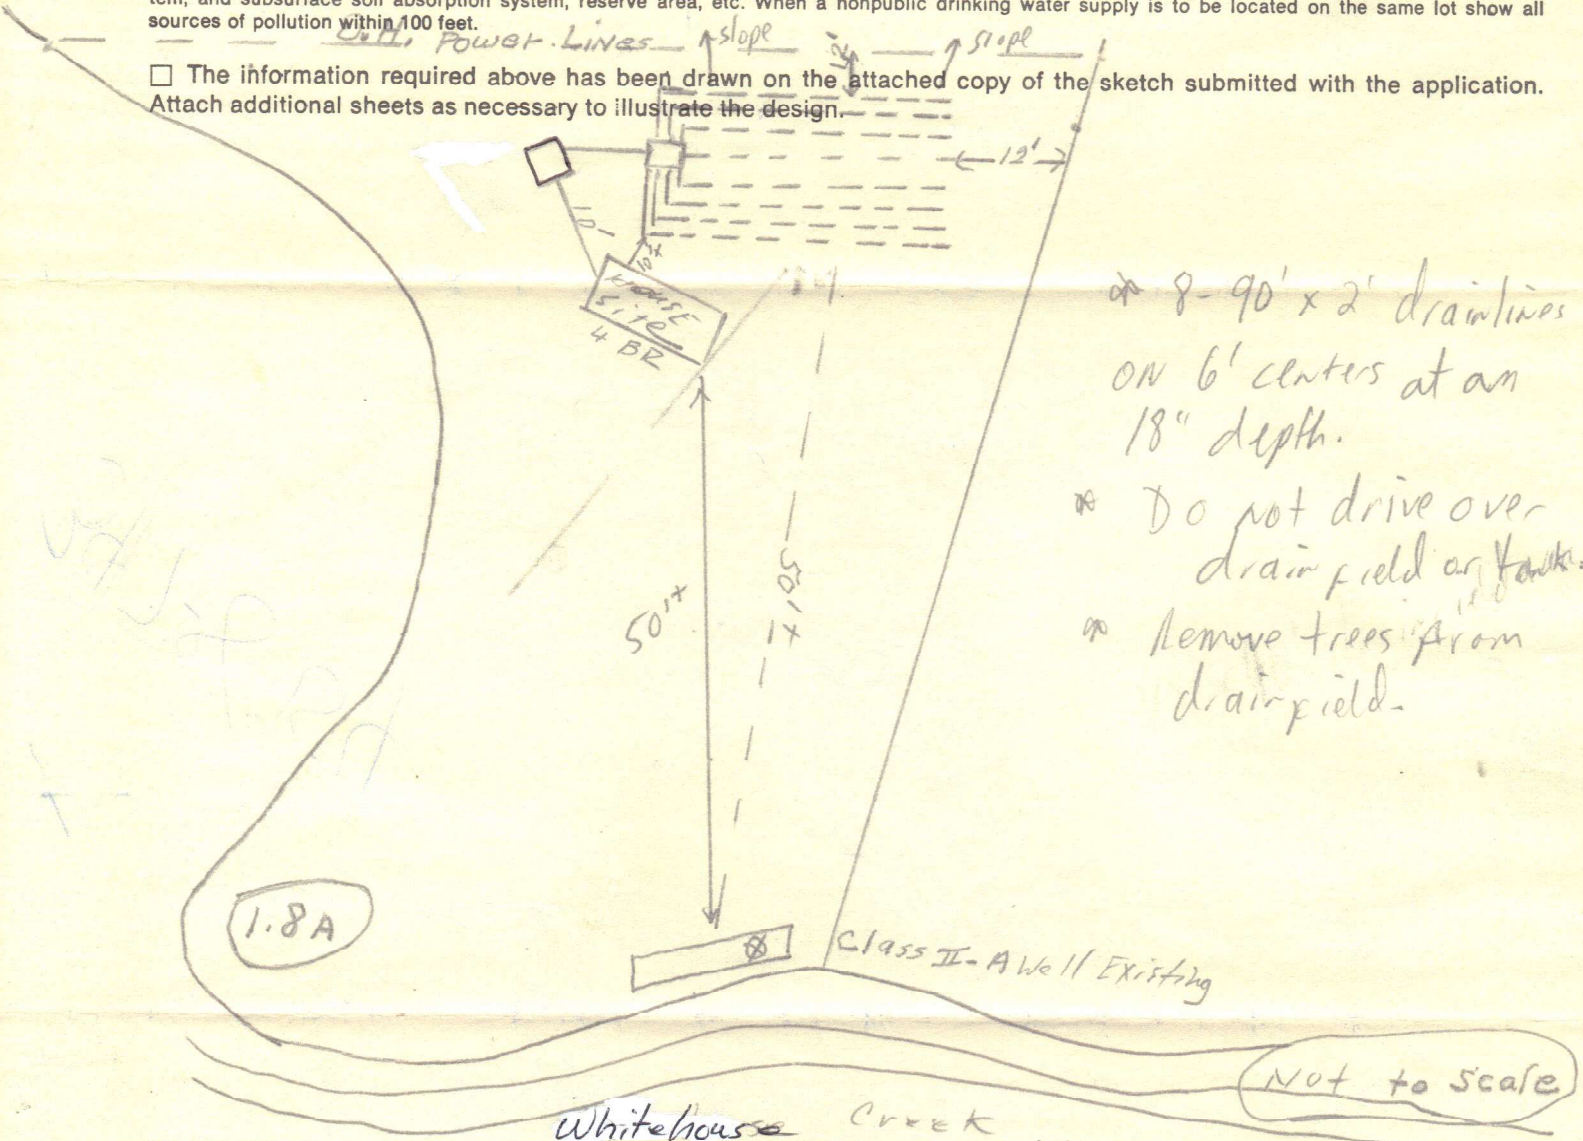 tem, and subsurface soil absorption system, reserve area, etc. When a nonpublic drinking water supply is to be located on the same lot show all
sources of pollution within 100 feet.
O.H. Power Lines
slope
12'
slope
☐ The information required above has been drawn on the attached copy of the sketch submitted with the application.
Attach additional sheets as necessary to illustrate the design.
12'
10'
10'+
House
Site
4 BR
* 8-90' x 2' drainlines
on 6' centers at an
18" depth.
* Do not drive over
drainfield or tank.
* Remove trees from
drainfield.
50'+
50'+
1.8A
Class II-A Well Existing
Not to Scale
Whitehouse Creek